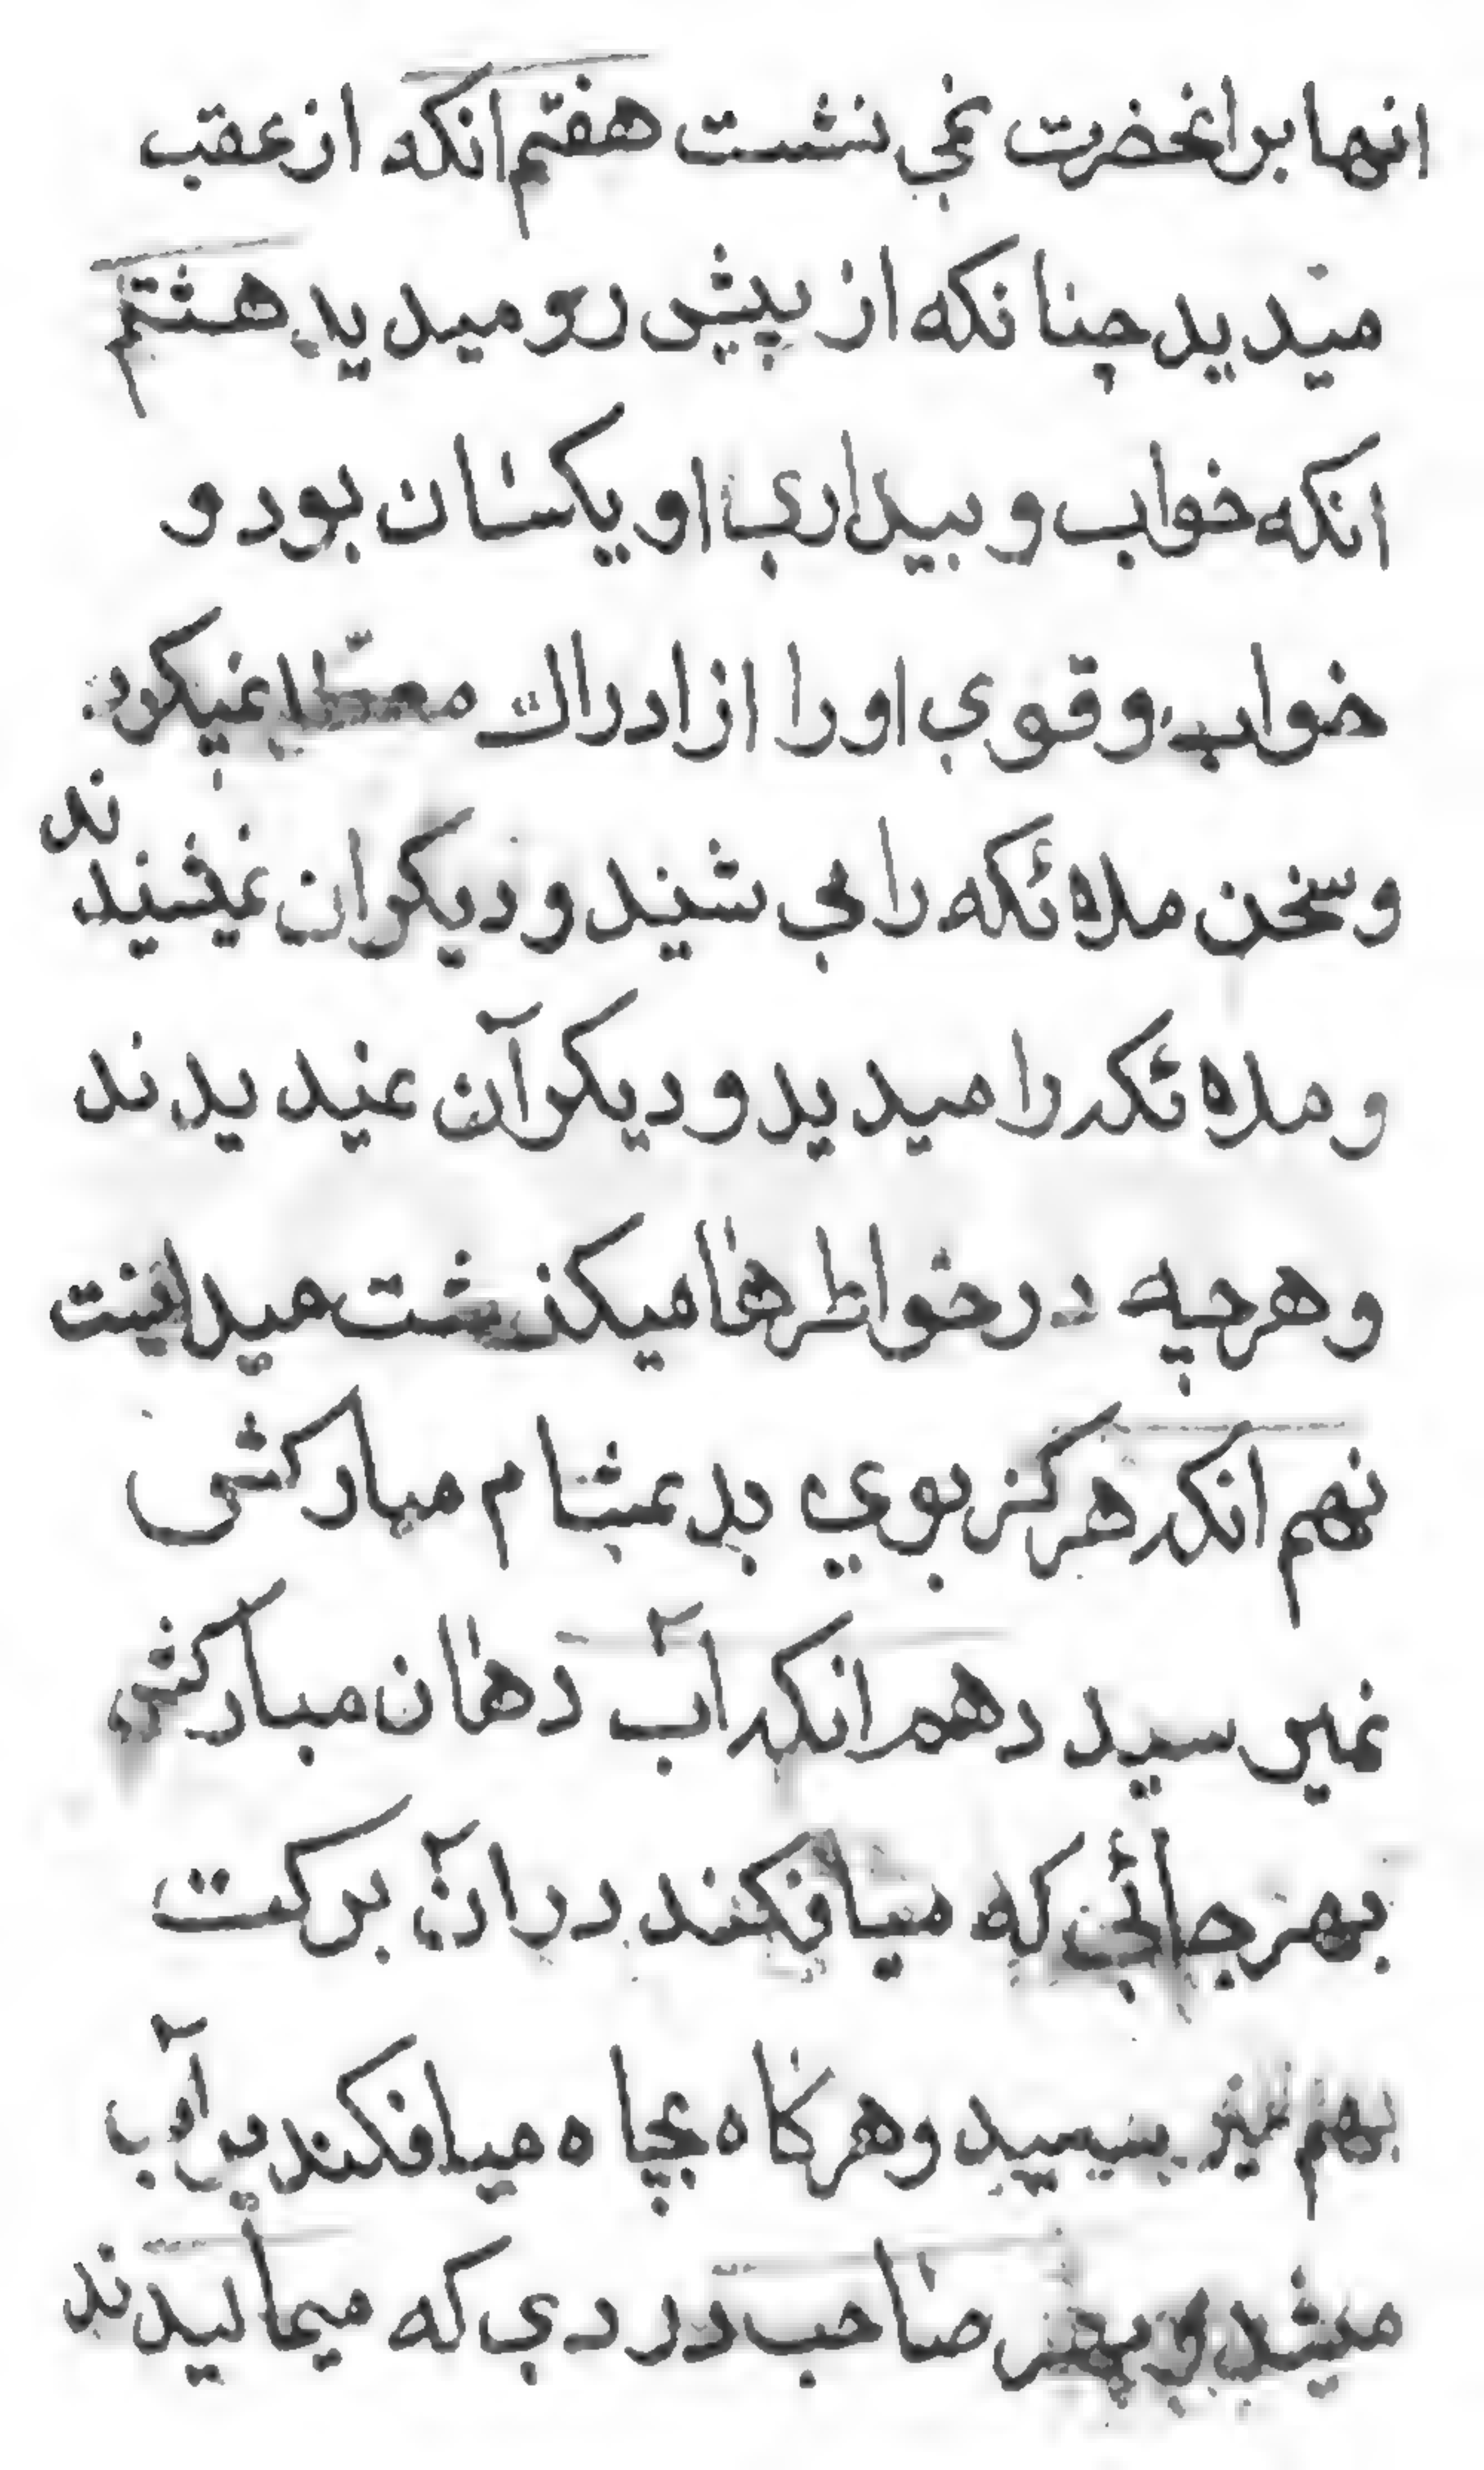 انها برانحضرت نمی نشست هفتم انکه از عقب
میدید چنانکه از پیش رو میدید هشتم
انکه خواب و بیداری او یکسان بود و
خواب و قوی او را از ادراك معطل نمیکرد
و سخن ملائکه را می شنید و دیکران نمیشنیدند
و ملائکه را میدید و دیکرآن نمیدیدند
و هرچه در خواطرها میکذشت میدانست
نهم انکه هرکز بوی بد بمشام مبارکش
نمیرسید دهم انکه آب دهان مبارکش
بهر جائی که میافکند دران برکت
بهم میرسید و هرکاه بچاه میافکند پرآب
میشد و بهر صاحب دردی که میمالیدند